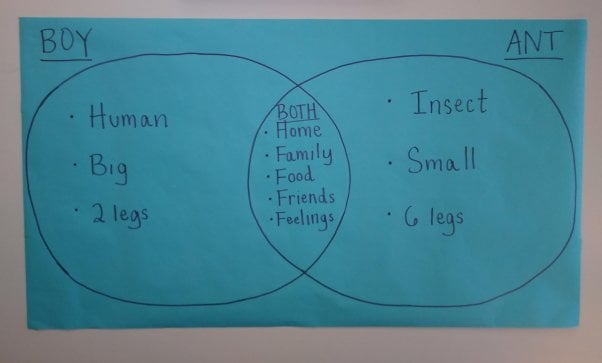 BOY
ANT
· Human
· Big
· 2 legs
BOTH
· Home
· Family
· Food
· Friends
· Feelings
· Insect
· Small
· 6 legs